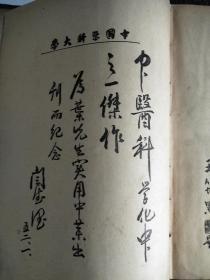 中國醫科大學
中醫科學化中
之一傑作
為葉先生實用中藥出
刊而紀念
閻德潤